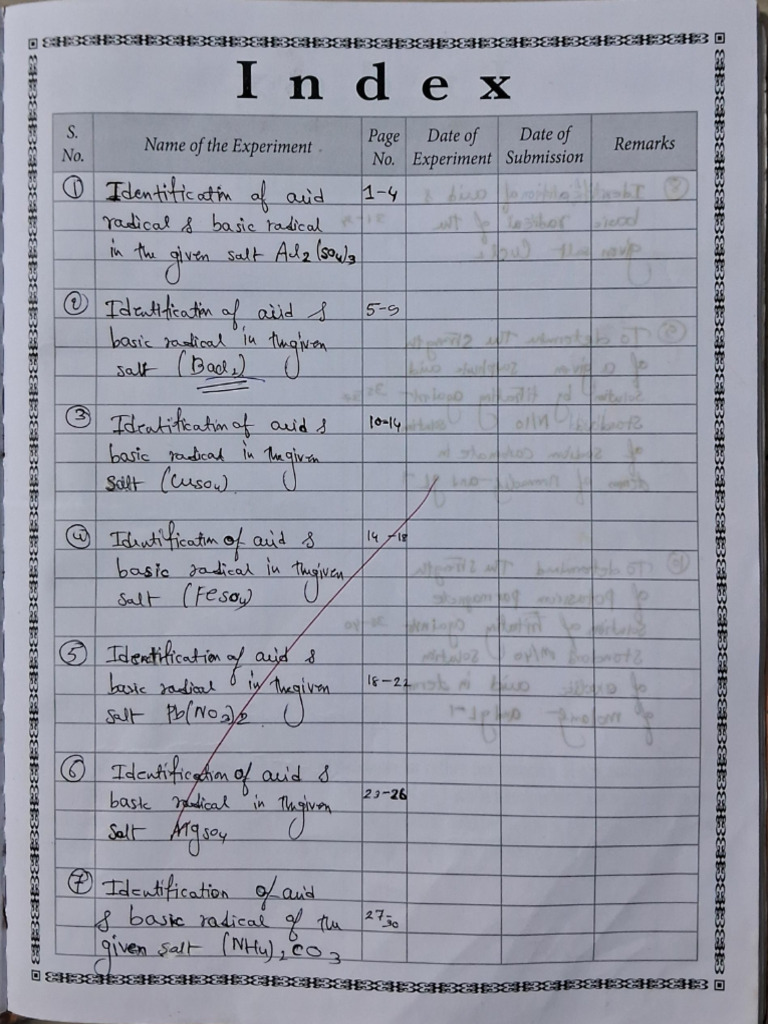 Index
S. No. Name of the Experiment Page No. Date of Experiment Date of Submission Remarks
① Identification of acid 1-4
radical & basic radical
in the given salt Al2(SO4)3
② Identification of acid & 5-9
basic radical in the given
salt (BaCl2)
③ Identification of acid & 10-14
basic radical in the given
salt (CuSO4)
④ Identification of acid & 14-18
basic radical in the given
salt (FeSO4)
⑤ Identification of acid &
basic radical in the given 18-22
salt Pb(NO3)2
⑥ Identification of acid &
basic radical in the given 23-26
salt MgSO4
⑦ Identification of acid
& basic radical of the 27-30
given salt (NH4)2CO3